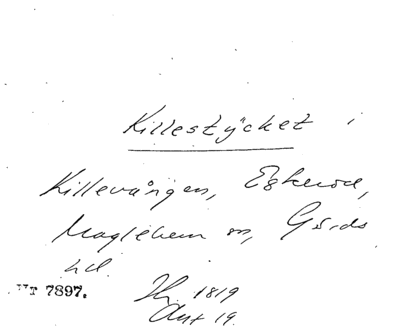 Killestycket i
Killevången, Eskerod,
Maglehem sn, Gärds
hd.
Ur 7897.
1819
Akt 19.